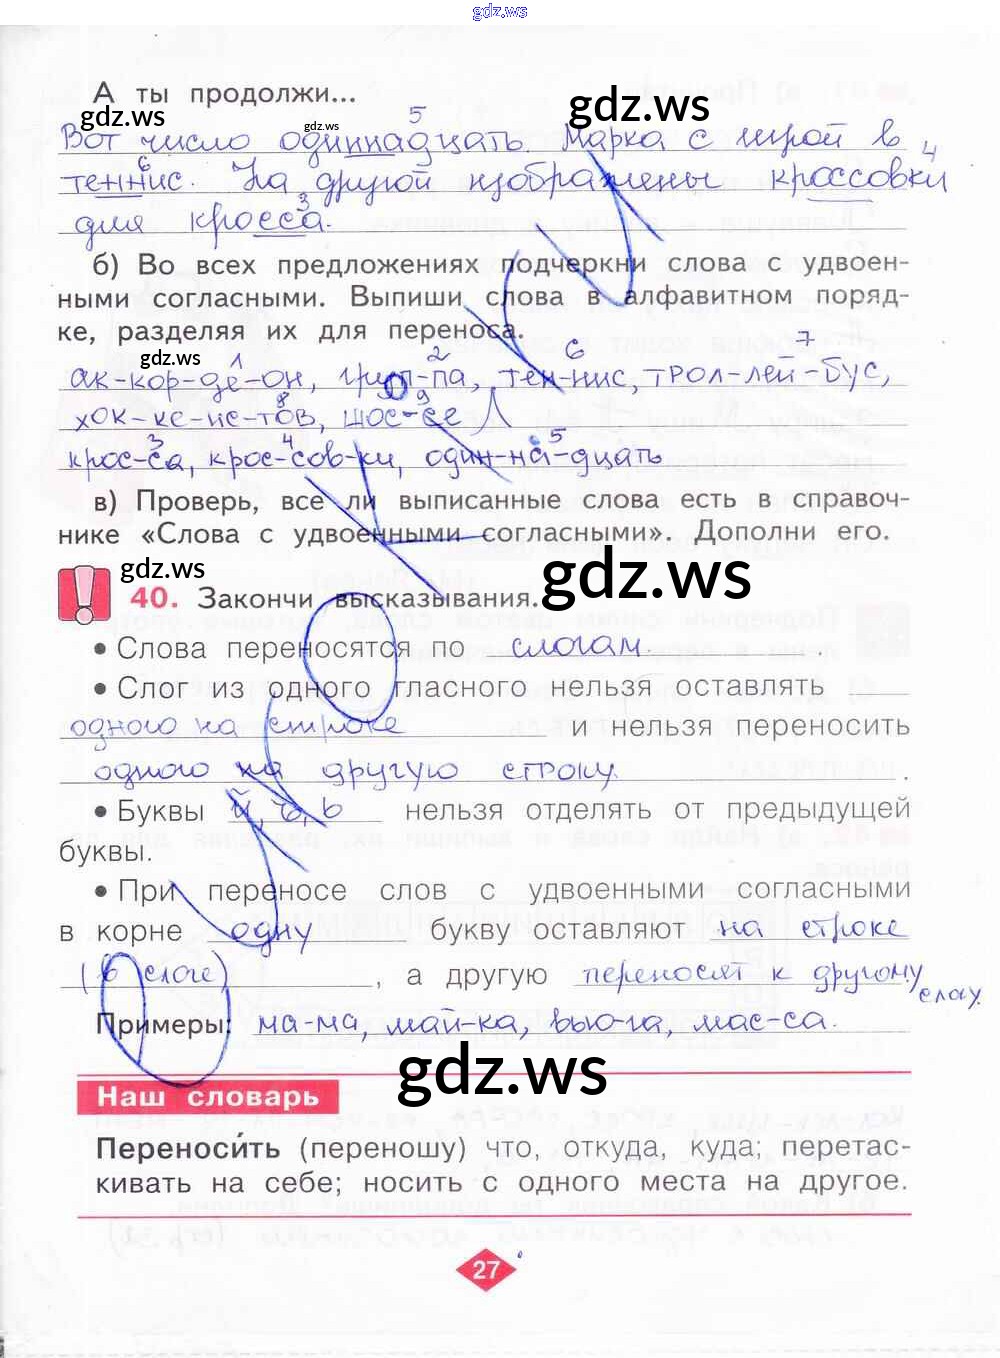 gdz.ws
А ты продолжи...
gdz.ws gdz.ws gdz.ws
5
Вот число одиннадцать. Марка с игрой в
6 4
теннис. На другой изображены кроссовки
3
для кросса.
б) Во всех предложениях подчеркни слова с удвоен-
ными согласными. Выпиши слова в алфавитном поряд-
ке, разделяя их для переноса.
gdz.ws
1 2 6 7
ак-кор-де-он, грип-па, тен-нис, трол-лей-бус,
8 9
хок-ке-ис-тов, шос-се
3 4 5
крос-са, крос-сов-ки, один-на-дцать
в) Проверь, все ли выписанные слова есть в справоч-
нике «Слова с удвоенными согласными». Дополни его.
gdz.ws gdz.ws
40. Закончи высказывания.
• Слова переносятся по слогам.
• Слог из одного гласного нельзя оставлять
одного на строке и нельзя переносить
одного на другую строку.
• Буквы й, ъ, ь нельзя отделять от предыдущей
буквы.
• При переносе слов с удвоенными согласными
в корне одну букву оставляют на строке
(в слоге), а другую переносят к другому
слогу.
Примеры: ма-ма, май-ка, вью-га, мас-са.
gdz.ws
Наш словарь
Переноси́ть (переношу) что, откуда, куда; перетас-
кивать на себе; носить с одного места на другое.
27